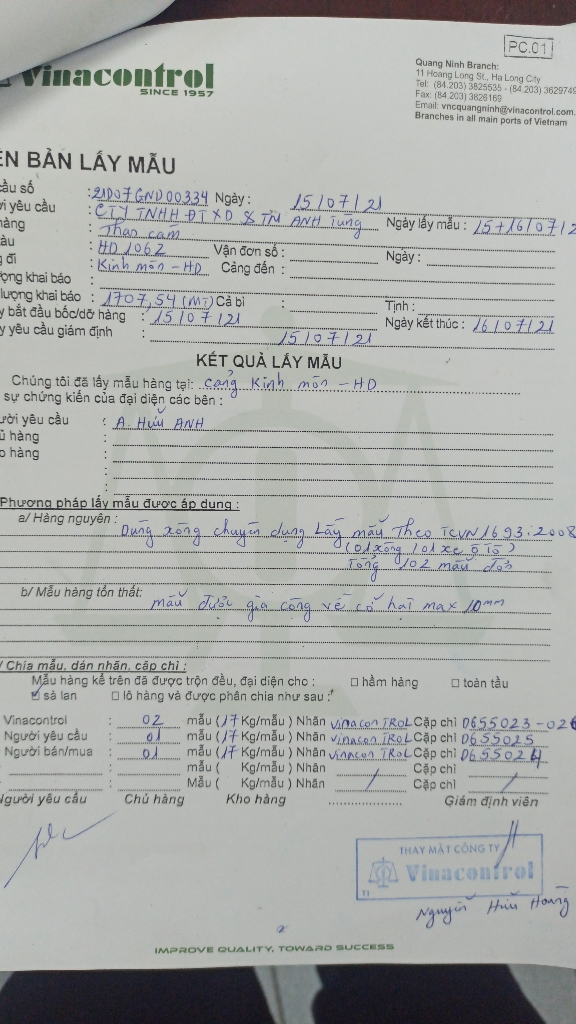 PC.01
Vinacontrol
SINCE 1957
Quang Ninh Branch:
11 Hoang Long St., Ha Long City
Tel: (84.203) 3825535 - (84.203) 3629749
Fax: (84.203) 3826169
Email: vncquangninh@vinacontrol.com.
Branches in all main ports of Vietnam
ÊN BẢN LẤY MẪU
cầu số : 21D07GND00334 Ngày : 15/07/21
ời yêu cầu : CTY TNHH ĐT XD & TM ANH Tùng Ngày lấy mẫu : 15+16/07/2
hàng : Than cám
àu : HD 1062 Vận đơn số : Ngày :
g đi : Kinh môn - HD Cảng đến :
ọng khai báo :
lượng khai báo : 1707,54 (MT) Cả bì : Tịnh :
y bắt đầu bốc/dỡ hàng : 15/07/21 Ngày kết thúc : 16/07/21
y yêu cầu giám định : 15/07/21
KẾT QUẢ LẤY MẪU
Chúng tôi đã lấy mẫu hàng tại: cảng Kinh môn - HD
sự chứng kiến của đại diện các bên :
ười yêu cầu : A. Hữu ANH
ủ hàng :
o hàng :
Phương pháp lấy mẫu được áp dụng :
a/ Hàng nguyên : Dùng xông chuyên dụng Lấy mẫu Theo TCVN 1693:2008
(01 xông /01 xe ô tô)
Tổng 102 mẫu đơn
b/ Mẫu hàng tổn thất: mẫu được gia công về cỡ hạt max 10mm
/ Chia mẫu, dán nhãn, cặp chì :
Mẫu hàng kể trên đã được trộn đều, đại diện cho : □ hầm hàng □ toàn tàu
☑ sà lan □ lô hàng và được phân chia như sau :
Vinacontrol : 02 mẫu (17 Kg/mẫu ) Nhãn VinaconTROL Cặp chì 0655023-026
Người yêu cầu : 01 mẫu (17 Kg/mẫu ) Nhãn VinaconTROL Cặp chì 0655025
Người bán/mua : 01 mẫu (17 Kg/mẫu ) Nhãn VinaconTROL Cặp chì 0655024
: mẫu ( Kg/mẫu ) Nhãn / Cặp chì /
: Mẫu ( Kg/mẫu ) Nhãn Cặp chì
Người yêu cầu Chủ hàng Kho hàng Giám định viên
THAY MẶT CÔNG TY
Vinacontrol
T1
Nguyễn Hữu Hoàng
IMPROVE QUALITY, TOWARD SUCCESS